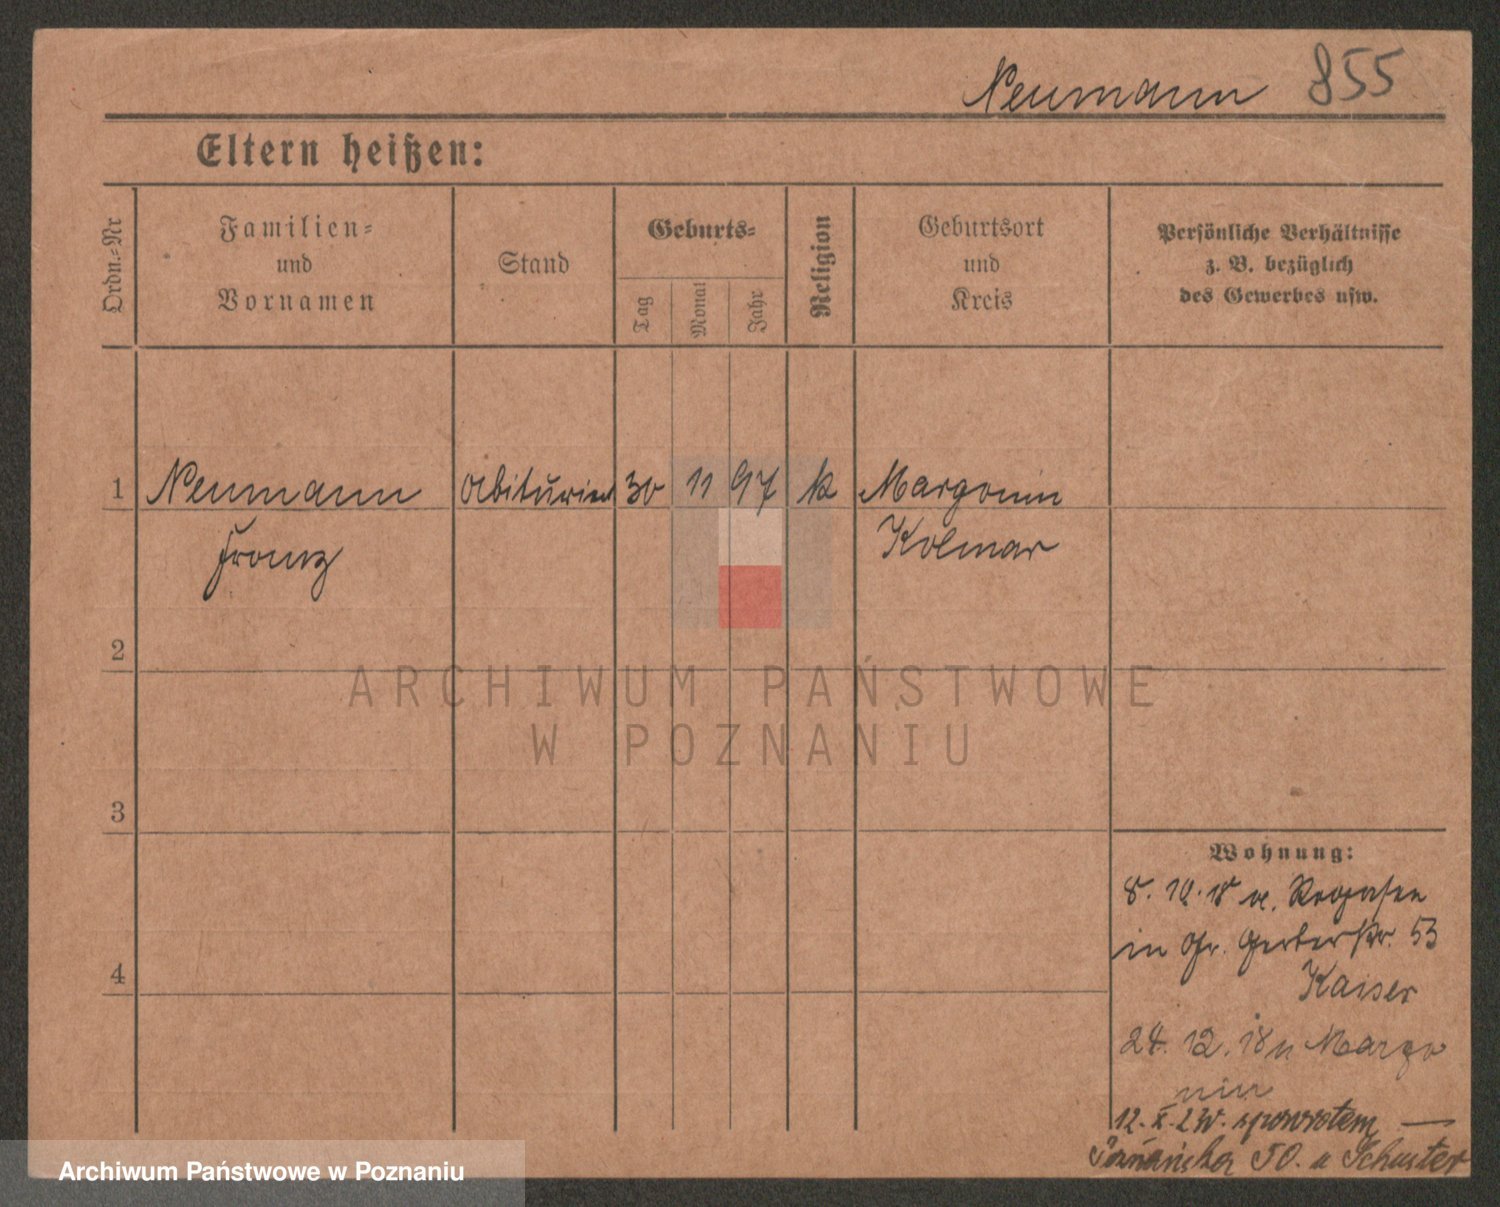 Neumann 855
Eltern heißen:
Ordn.-Nr
Familien-
und
Vornamen
Stand
Geburts-
Tag
Monat
Jahr
Religion
Geburtsort
und
Kreis
Persönliche Verhältnisse
z. B. bezüglich
des Gewerbes usw.
1 Neumann Abiturient 30 11 97 k Margonin
Franz Kolmar
2
3
4
Wohnung:
8. 10. 18 v. Rogasen
in Gr. Gerberstr. 53
Kaiser
24. 12. 18 n Margo
nin
12. X. spowrotem —
50. u Schuster
ARCHIWUM PAŃSTWOWE
W POZNANIU
Archiwum Państwowe w Poznaniu